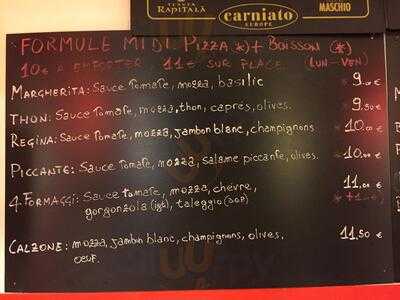 TENUTA
RAPITALÀ
carniato
EUROPE
MASCHIO
FORMULE MIDI: PIZZA *) + BOISSON (*)
10€ A EMPORTER, 11€ SUR PLACE (LUN-VEN)
MARGHERITA: Sauce Tomate, mozza, basilic 9.00€
THON: Sauce Tomate, mozza, thon, capres, olives. 9.50€
REGINA: Sauce Tomate, mozza, jambon blanc, champignons 10.00€
PICCANTE: Sauce Tomate, mozza, salame piccante, olives. 10.00€
4-FORMAGGI: Sauce tomate, mozza, chèvre, 11,00€
gorgonzola (igt), taleggio (DOP) *+1.-€
CALZONE: mozza, jambon blanc, champignons, olives. 11,50€
oeuf.